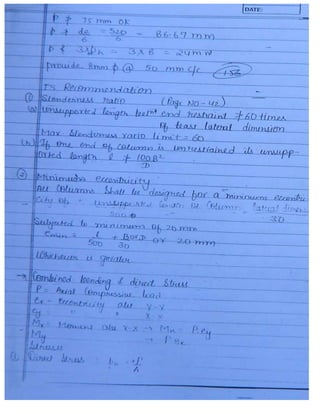 DATE:
P ≯ 75 mm OK
P ≯ dc/6 = 520/6 = 86.67 mm
P ≮ 3φh = 3x8 = 24mm
provide 8mm φ @ 50 mm c/c
IS Recommendation
① Slenderness ratio (Page NO-42)
(a) Unsupported length betn end restraint ≯ 60 times
of least lateral dimension
Max. slenderness ratio limit = 60
(b) If the end of column is unrestrained its unsupp-
orted length l ≯ 100B²/D
② Minimum eccentricity
All columns shall be designed for a minimum eccentri-
city of = unsupported length of column
500 30
Subjected to minimum of 20 mm
emin = l/500 + B or D/30 or 20 mm
Whichever is greater
→ Combined bending & direct stress
P = Axial compressive load
ex = Eccentricity abt Y-Y
ey = " " X X
Mx = Moment abt x-x → Mx = P.ey
My → P.ex
Stresses
Direct stress :